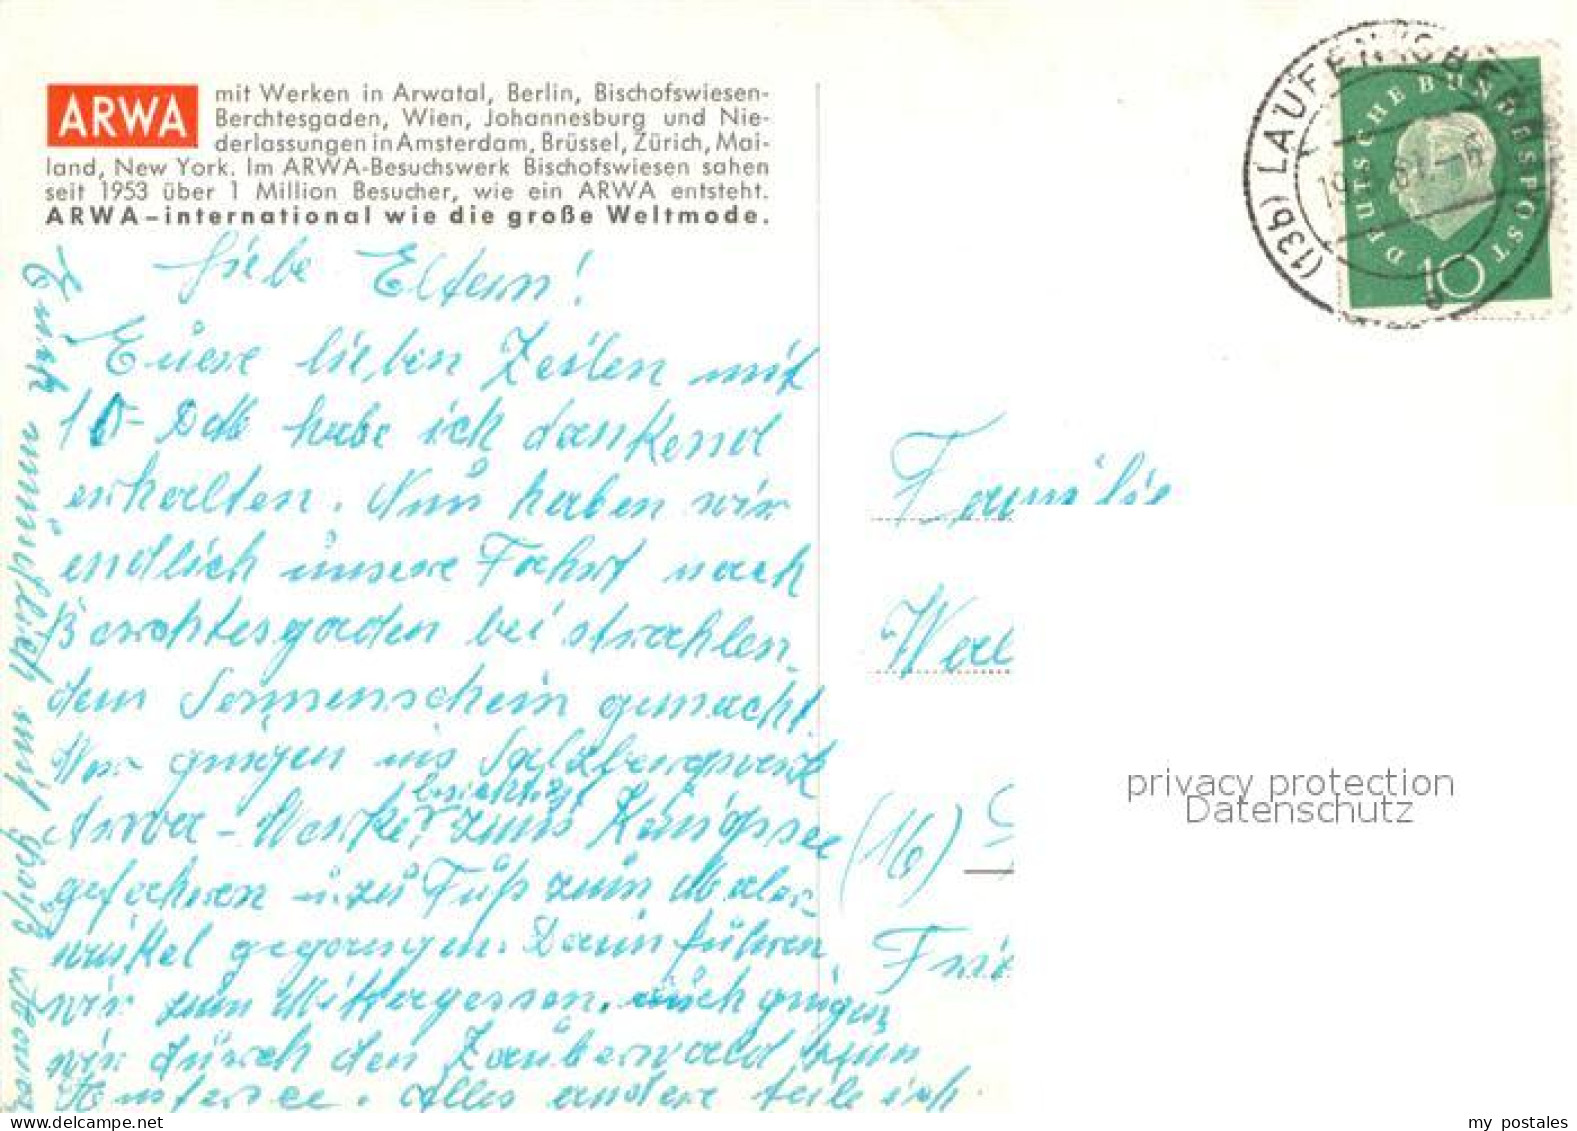 ARWA mit Werken in Arwatal, Berlin, Bischofswiesen-
Berchtesgaden, Wien, Johannesburg und Nie-
derlassungen in Amsterdam, Brüssel, Zürich, Mai-
land, New York. Im ARWA-Besuchswerk Bischofswiesen sahen
seit 1953 über 1 Million Besucher, wie ein ARWA entsteht.
ARWA–international wie die große Weltmode.
Liebe Eltern!
Euere lieben Zeilen mit
10- DM habe ich dankend
erhalten. Nun haben wir
endlich unsere Fahrt nach
Berchtesgaden bei strahlen-
dem Sonnenschein gemacht.
Wir gingen ins Salzbergwerk
besichtigt
Arwa-Werke, zum Königssee
gefahren u. zu Fuß zum Maler-
winkel gegangen. Dann fuhren
wir zum Mittagessen. auch gingen
wir durch den Zauberwald zum
Hintersee. Alles andere teile ich
Euch mündlich mit
(13b) LAUFEN (OBERBAY)
DEUTSCHE BUNDESPOST
10
Familie
(16)
privacy protection
Datenschutz
my postales